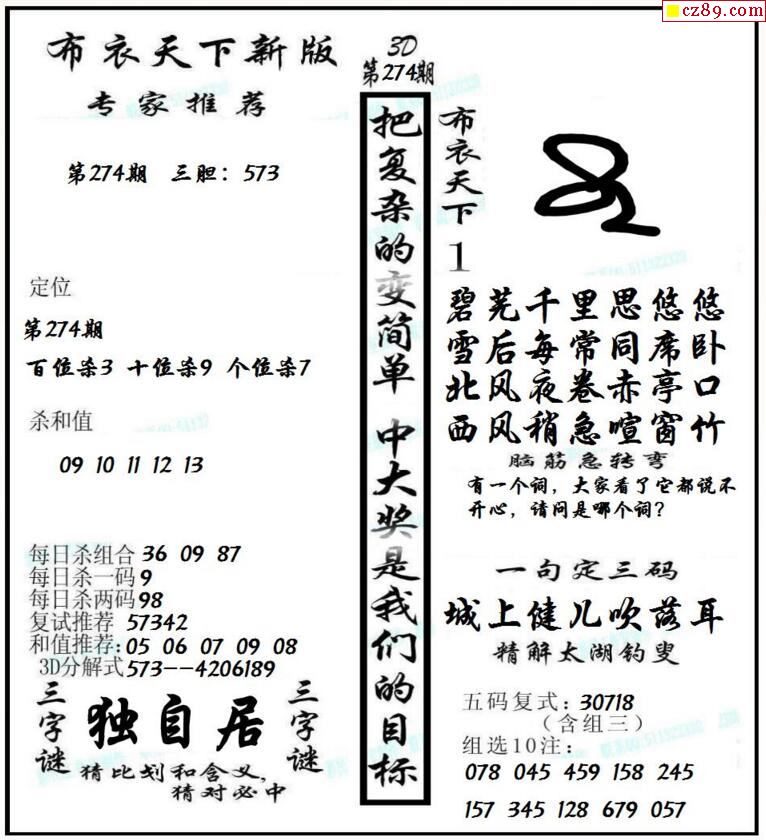 cz89.com
布衣天下新版
专家推荐
第274期 三胆：573
定位
第274期
百位杀3 十位杀9 个位杀7
杀和值
09 10 11 12 13
每日杀组合 36 09 87
每日杀一码 9
每日杀两码 98
复试推荐 57342
和值推荐: 05 06 07 09 08
3D分解式 573--4206189
三字谜
独自居
三字谜
猜此划和含义,
猜对必中
3D
第274期
把复杂的变简单 中大奖是我们的目标
布衣天下1
碧芜千里思悠悠
雪后每常同席卧
北风夜卷赤亭口
西风稍急喧窗竹
脑筋急转弯
有一个词，大家看了它都说不
开心，请问是哪个词？
一句定三码
城上健儿吹落耳
精解太湖钓叟
五码复式: 30718
（含组三）
组选10注:
078 045 459 158 245
157 345 128 679 057